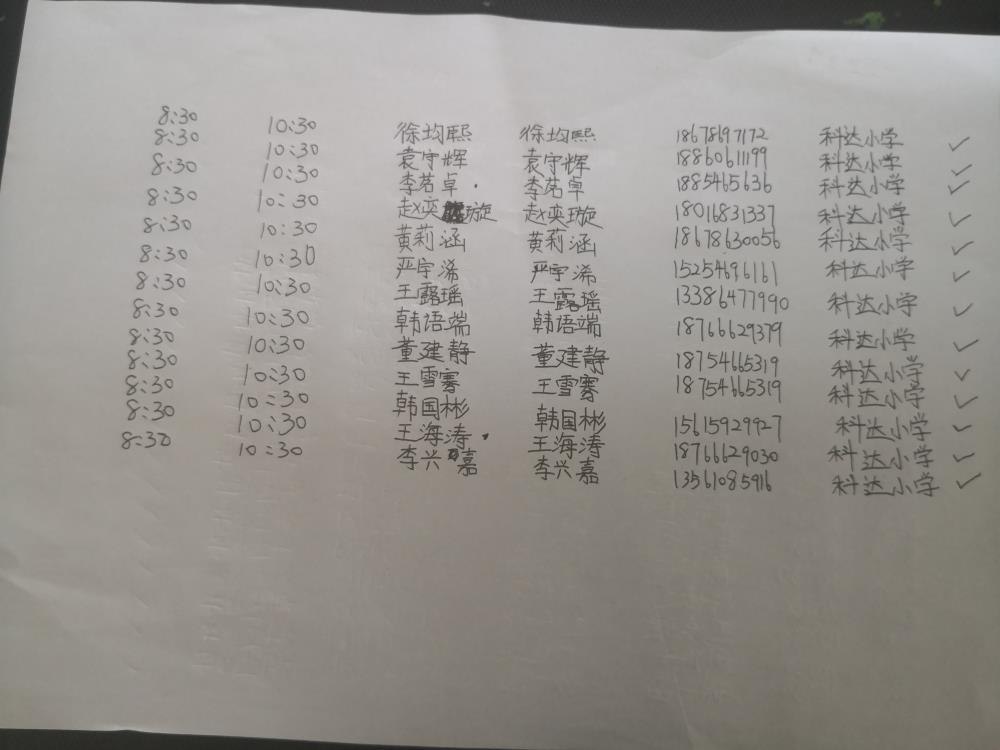 8:30 10:30 徐均熙 徐均熙 18678697172 科达小学 ✓
8:30 10:30 袁守辉 袁守辉 18860611199 科达小学 ✓
8:30 10:30 李茗卓 李茗卓 1885465636 科达小学 ✓
8:30 10:30 赵奕璇 赵奕璇 18016831337 科达小学 ✓
8:30 10:30 黄莉涵 黄莉涵 18678630056 科达小学 ✓
8:30 10:30 严宇浠 严宇浠 15254696161 科达小学 ✓
8:30 10:30 王露瑶 王露瑶 13386477990 科达小学 ✓
8:30 10:30 韩语端 韩语端 18766629379 科达小学 ✓
8:30 10:30 董建静 董建静 18754665319 科达小学 ✓
8:30 10:30 王雪骞 王雪骞 18754665319 科达小学 ✓
8:30 10:30 韩国彬 韩国彬 15615929927 科达小学 ✓
8:30 10:30 王海涛 王海涛 18766629030 科达小学 ✓
8:30 10:30 李兴嘉 李兴嘉 13561085916 科达小学 ✓